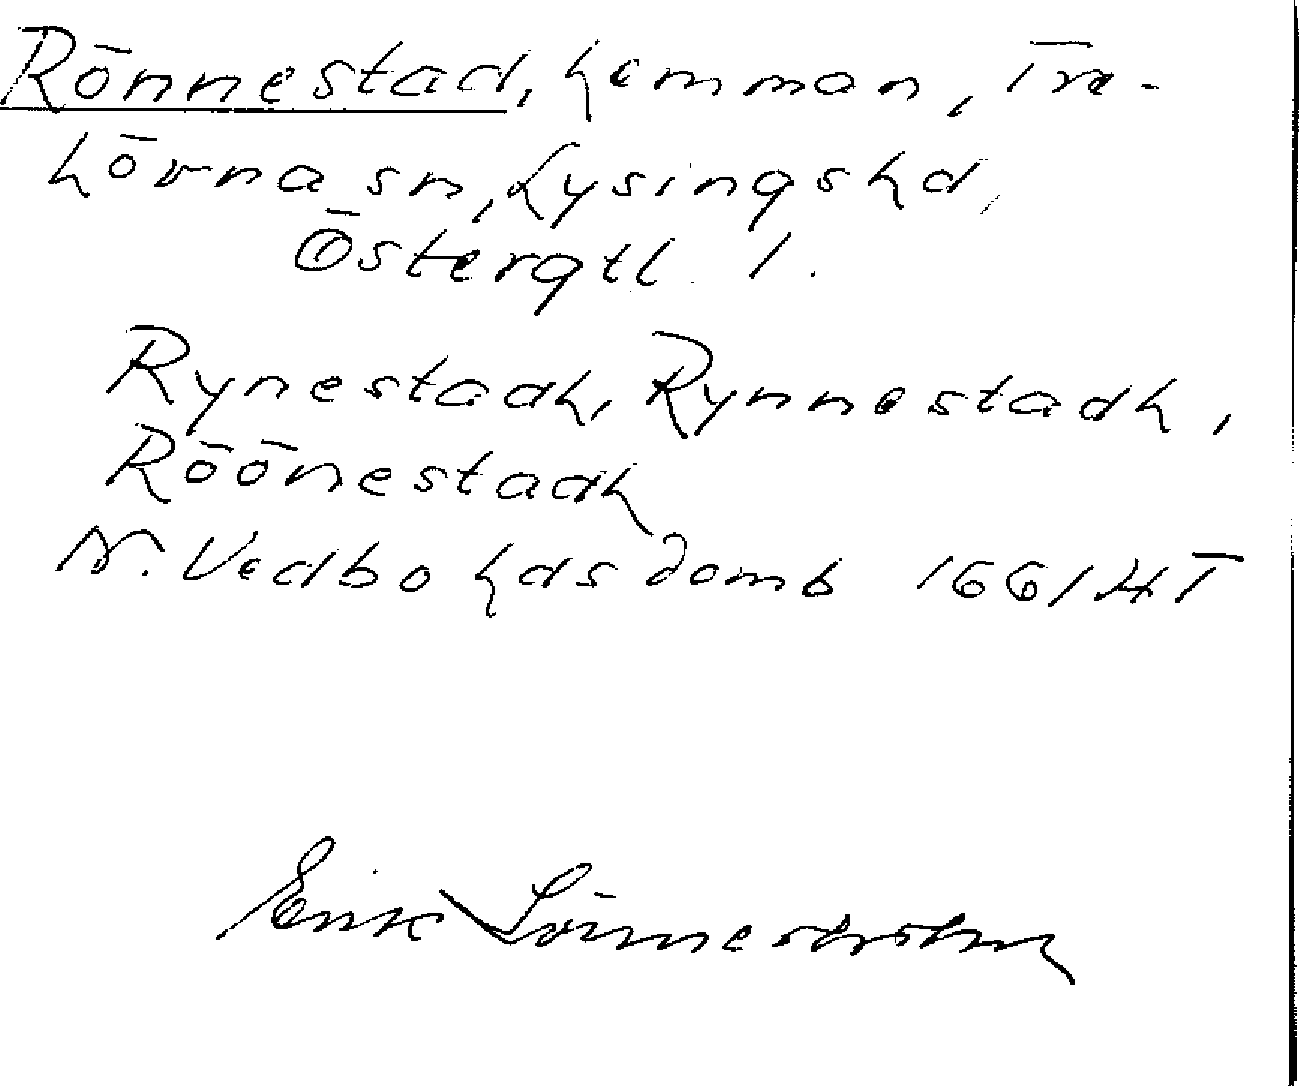 Rönnestad, hemman, Tre-
hörna sn, Lysings hd,
Östergtl. l.
Rynestadh, Rynnestadh,
Röönestadh
N. Vedbo hds domb 1661 HT
Erik